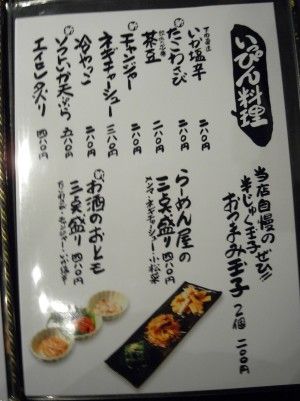 いっぴん料理
いか塩辛 二八〇円
たこわさび 二八〇円
茶豆 二八〇円
チャンジャー 二八〇円
ネギチャーシュー 三八〇円
冷やっこ 二八〇円
ソフトいか天ぷら 五八〇円
エイヒレ炙り 四八〇円
当店自慢の
ぜひ!!
半じゅく玉子
おつまみ玉子 2個 二〇〇円
らーめん屋の
三点盛り 四八〇円
メンマ・ネギチャーシュー・小松菜
お酒のおとも
三点盛り 四八〇円